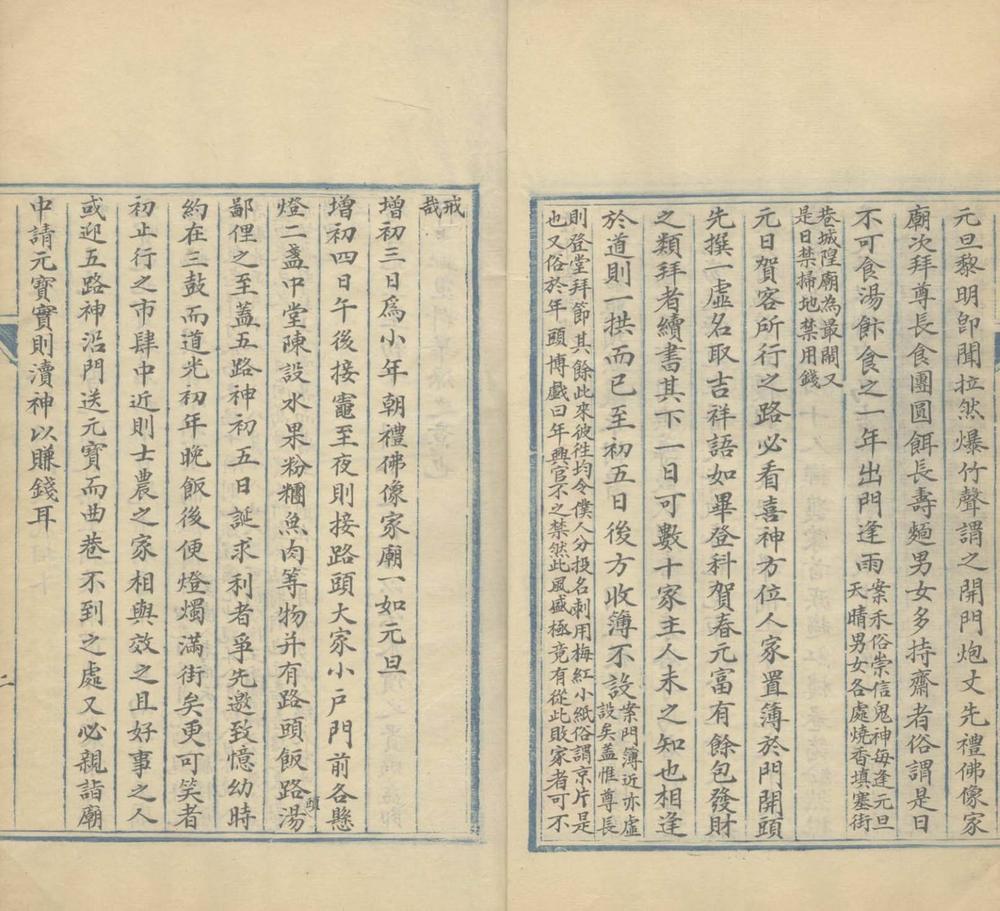 元旦黎明即聞拉然爆竹聲謂之開門炮丈先禮佛像家
廟次拜尊長食團圓餌長壽麵男女多持齋者俗謂是日
不可食湯飰食之一年出門逢雨
案禾俗崇信鬼神每逢元旦
天晴男女各處燒香填塞街
巷城隍廟為最閙又
是日禁掃地禁用錢
元日賀客所行之路必看喜神方位人家置簿於門開頭
先撰一虛名取吉祥語如畢登科賀春元富有餘包發財
之類拜者續書其下一日可數十家主人未之知也相逢
於道則一拱而已至初五日後方收簿不設
案門簿近亦虛
設矣蓋惟尊長
則登堂拜節其餘此來彼往均令僕人分投名刺用梅紅小紙俗謂京片是
也又俗於年頭博戲曰年興官不之禁然此風盛極竟有從此敗家者可不
戒
哉
增初三日為小年朝禮佛像家廟一如元旦
增初四日午後接竈至夜則接路頭大家小戶門前各懸
燈二盞中堂陳設水果粉糰魚肉等物并有路頭飯路頭湯
鄙俚之至蓋五路神初五日誕求利者爭先邀致憶幼時
約在三鼓而道光初年晚飯後便燈燭滿街矣更可笑者
初止行之市肆中近則士農之家相與效之且好事之人
或迎五路神沿門送元寶而曲巷不到之處又必親詣廟
中請元寶實則瀆神以賺錢耳